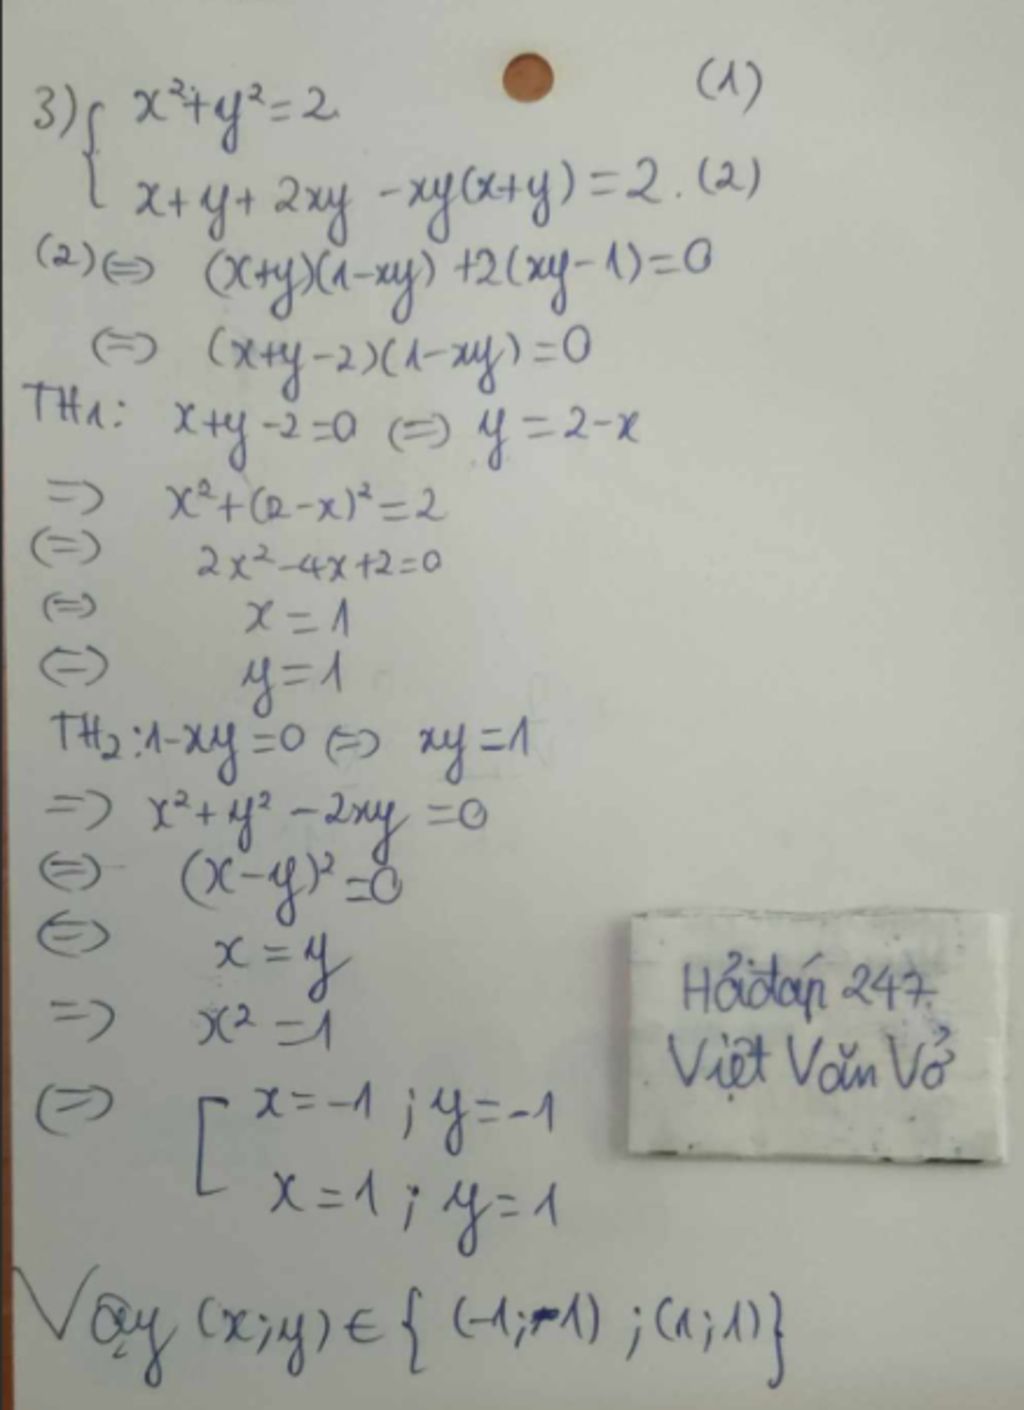 3) { x²+y²=2 (1)
x+y+2xy -xy(x+y)=2. (2)
(2) (=) (x+y)(1-xy) +2(xy-1)=0
(=) (x+y-2)(1-xy)=0
TH1: x+y-2=0 (=) y=2-x
=) x²+(2-x)²=2
(=) 2x²-4x+2=0
(=) x=1
(=) y=1
TH2:1-xy=0 (=) xy=1
=) x²+y²-2xy=0
(=) (x-y)²=0
(=) x=y
=) x²=1
(=) [ x=-1 ; y=-1
x=1 ; y=1
Vậy (x;y) ∈ { (-1;-1) ; (1;1)}
Hỏi đáp 247.
Việt Văn Vở